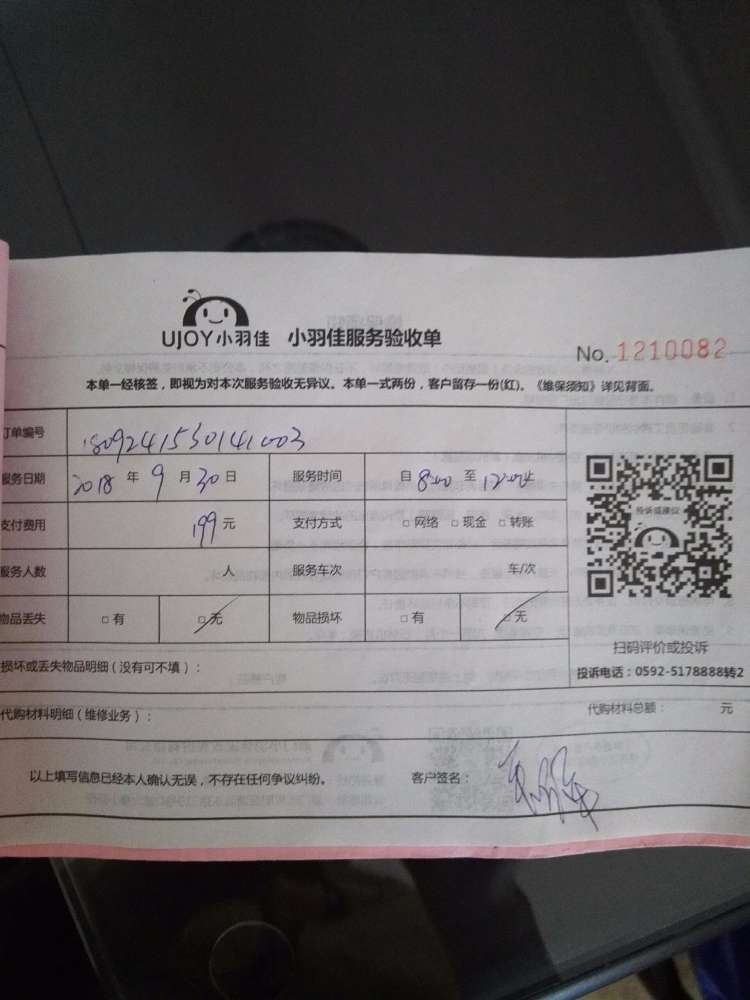 UJOY小羽佳 小羽佳服务验收单
No. 1210082
本单一经核签，即视为对本次服务验收无异议。本单一式两份，客户留存一份(红)。《维保须知》详见背面。
订单编号 1809241530141003
服务日期 2018 年 9 月 30 日 服务时间 自 8:00 至 12:00止
支付费用 199元 支付方式 □网络 □现金 □转账
服务人数 人 服务车次 车/次
物品丢失 □有 □无 物品损坏 □有 □无
投诉或建议
扫码评价或投诉
投诉电话：0592-5178888转2
损坏或丢失物品明细（没有可不填）：
代购材料明细（维修业务）： 代购材料总额： 元
以上填写信息已经本人确认无误，不存在任何争议纠纷。 客户签名：